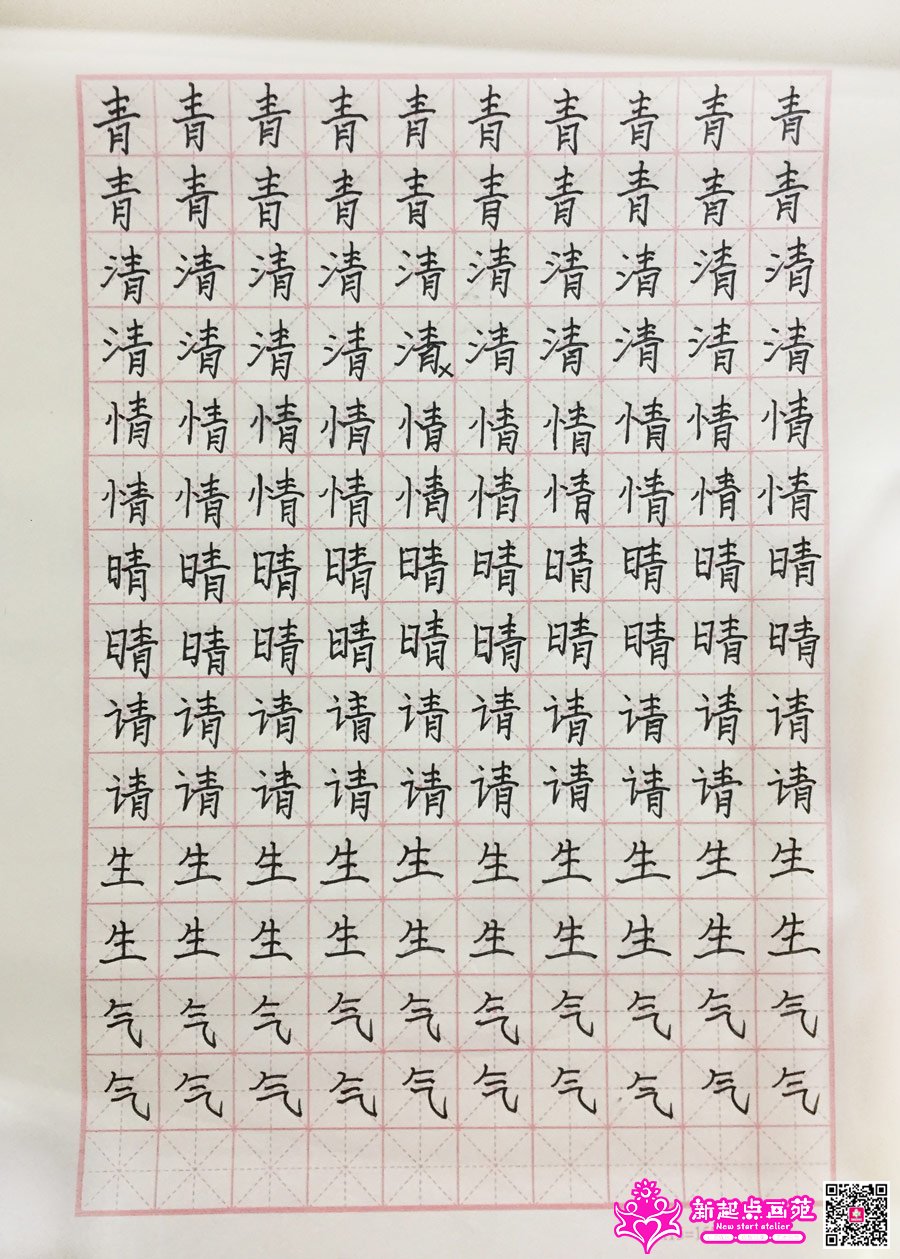 青青青青青青青青青青
青青青青青青青青青青
清清清清清清清清清清
清清清清清×清清清清清
情情情情情情情情情情
情情情情情情情情情情
晴晴晴晴晴晴晴晴晴晴
晴晴晴晴晴晴晴晴晴晴
请请请请请请请请请请
请请请请请请请请请请
生生生生生生生生生生
生生生生生生生生生生
气气气气气气气气气气
气气气气气气气气气气
新起点画苑
New start atelier